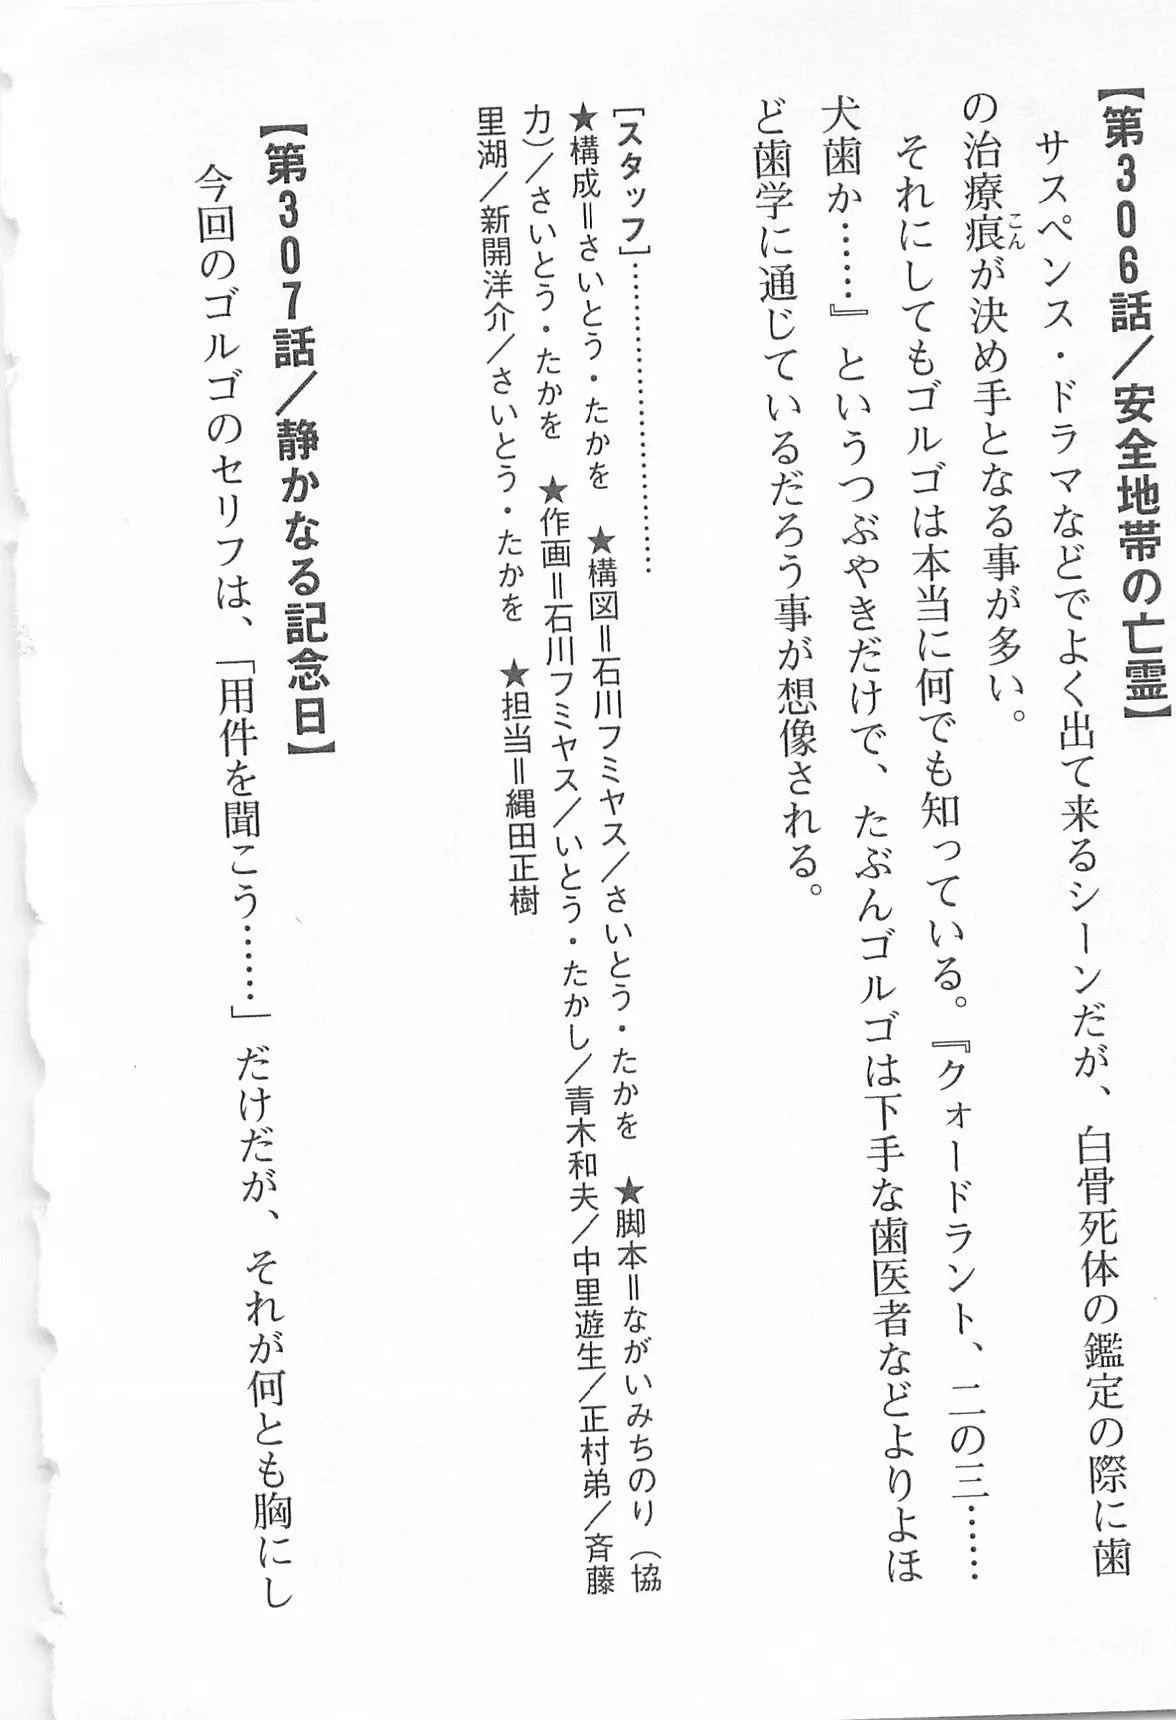 【第306話／安全地帯の亡霊】
サスペンス・ドラマなどでよく出て来るシーンだが、白骨死体の鑑定の際に歯
の治療痕こんが決め手となる事が多い。
それにしてもゴルゴは本当に何でも知っている。『クォードラント、二の三……
犬歯か……』というつぶやきだけで、たぶんゴルゴは下手な歯医者などよりよほ
ど歯学に通じているだろう事が想像される。
［スタッフ］……………………………
★構成＝さいとう・たかを　★構図＝石川フミヤス／さいとう・たかを　★脚本＝ながいみちのり（協
力）／さいとう・たかを　★作画＝石川フミヤス／いとう・たかし／青木和夫／中里遊生／正村弟／斉藤
里湖／新開洋介／さいとう・たかを　★担当＝縄田正樹
【第307話／静かなる記念日】
今回のゴルゴのセリフは、「用件を聞こう……」だけだが、それが何とも胸にし